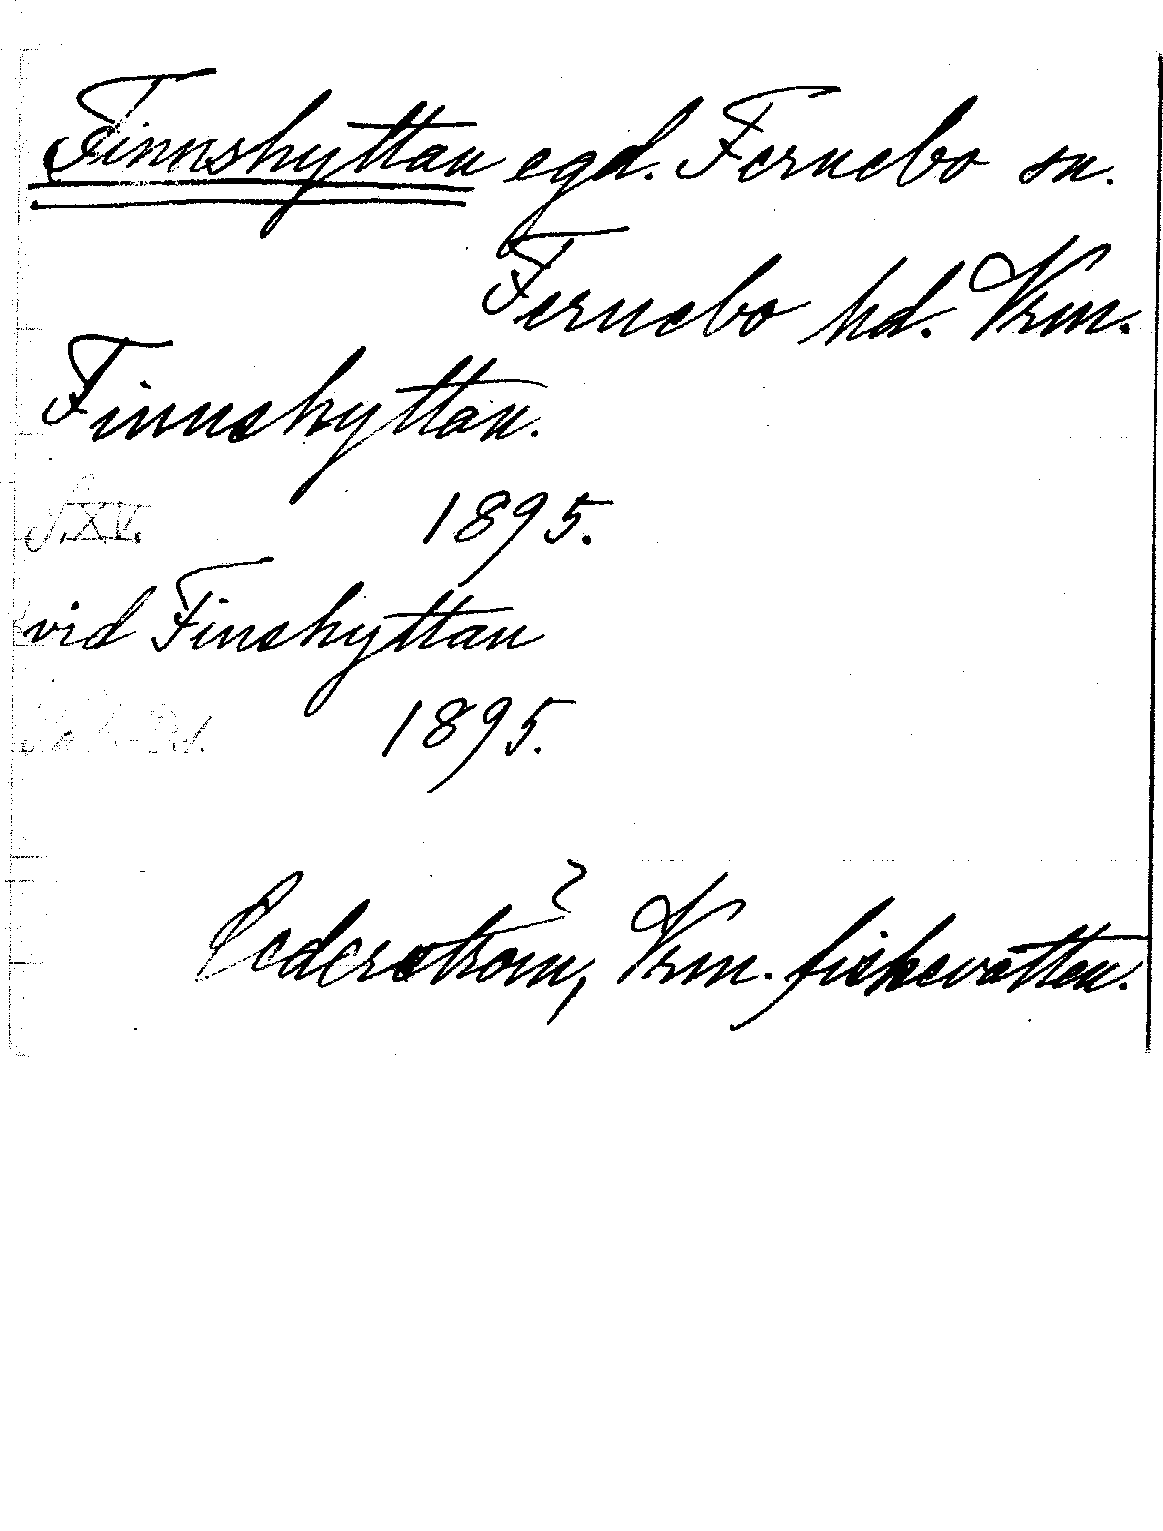 Finnshyttan egd. Fernebo sn.
Fernebo hd. Vrm.
Finnshyttan.
S.XV. 1895.
vid Finshyttan
1895.
Cederström, Vrm. fiskevatten.